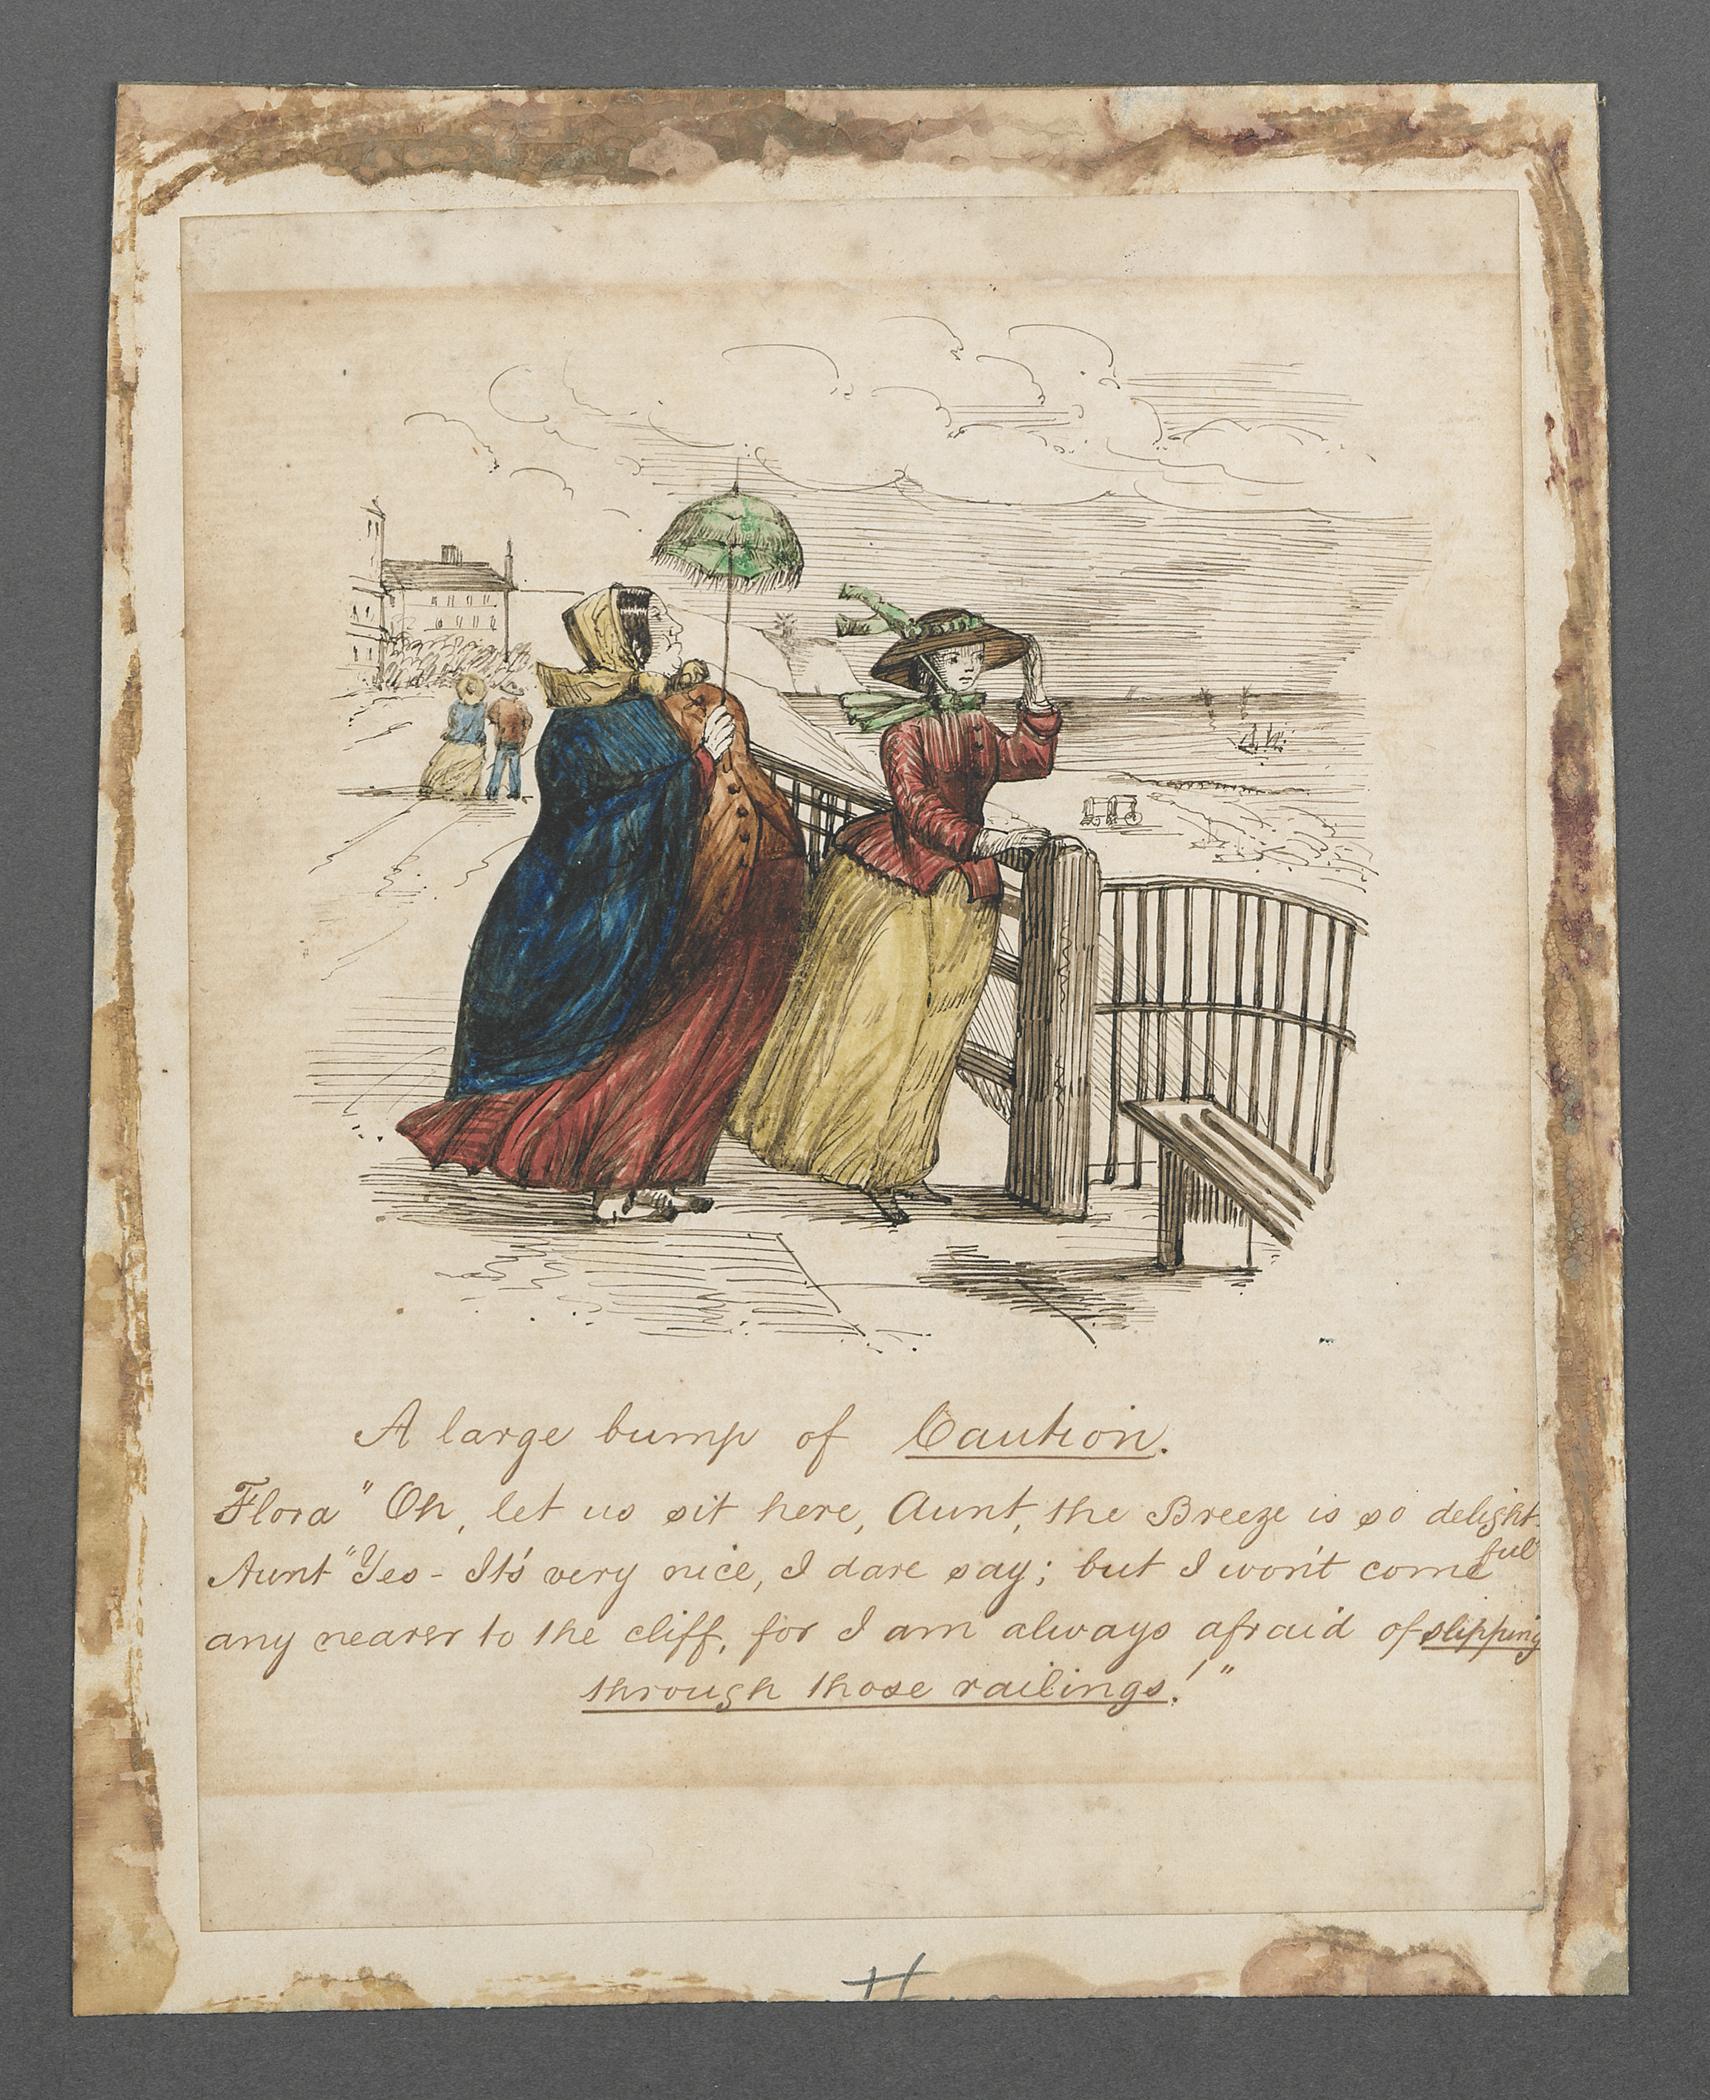 A large bump of Caution.
Flora " Oh, let us sit here, Aunt, the Breeze is so delight-
ful
Aunt "Yes - It's very nice, I dare say; but I won't come
any nearer to the cliff, for I am always afraid of slipping
through those railings!"